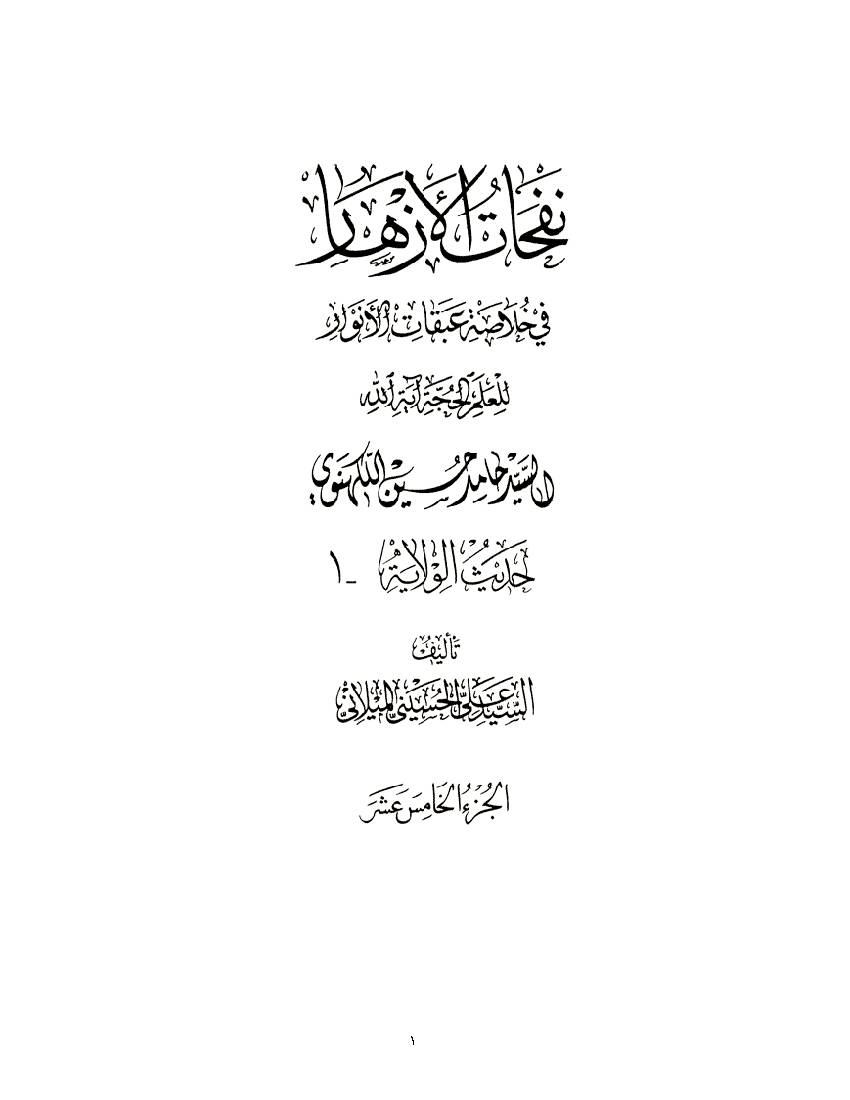 نَفَحَاتُ الأَزْهَار
فِي خُلَاصَةِ عَبَقَاتِ الأَنْوَارِ
لِلْعَلَمِ الْحُجَّةِ آيَةِ اللهِ
السَّيِّد حَامِد حُسَيْن اللَّكْهَنَوِي
حَدِيثُ الْوِلَايَةِ - ١
تَأْلِيفُ
السَّيِّد عَلِيّ الْحُسَيْنِي الْمِيلَانِيّ
الْجُزْءُ الْخَامِسَ عَشَرَ
١